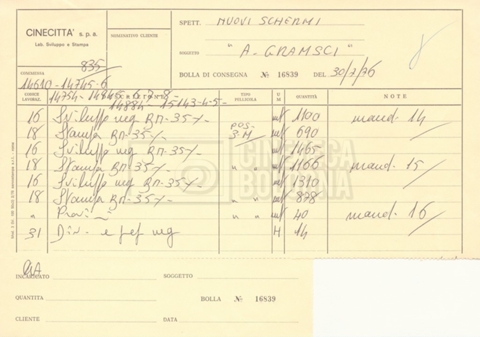 CINECITTÀ s.p.a.
Lab. Sviluppo e Stampa
NOMINATIVO CLIENTE
SPETT. NUOVI SCHERMI
OGGETTO " A. GRAMSCI "
BOLLA DI CONSEGNA № 16839 DEL 30/7/76
835
COMMESSA
14610-14745-6
14754-14845-6-7-8-
14884 15143-4-5-
CODICE LAVORAZ. TIPO PELLICOLA U DI M QUANTITÀ NOTE
16 Sviluppo neg BN-35 mt 1100 mand. 14
18 Stampa BN-35 POS. 3M mt 690
16 Sviluppo neg BN-35 mt 1465
18 Stampa BN-35 " " mt 1166 mand. 15
16 Sviluppo neg BN-35 mt 1310
18 Stampa BN-35 " " mt 878
" Provini " " mt 40 mand. 16
31 Div. e pef neg H 14
CINETECA BOLOGNA
INCARICATO SOGGETTO
QUANTITÀ BOLLA № 16839
CLIENTE DATA